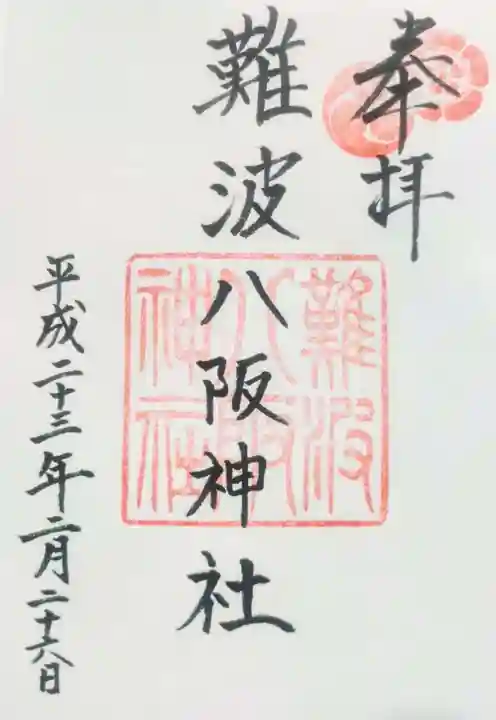 奉拝
難波八阪神社
難波八阪神社
平成二十三年二月二十六日